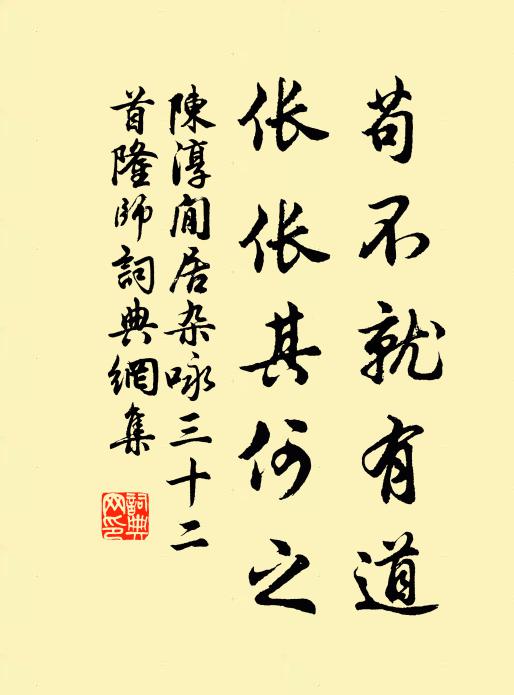 苟不就有道
伥伥其何之
陳淳閒居杂咏三十二
首隆师詞典網集
詞典
网印